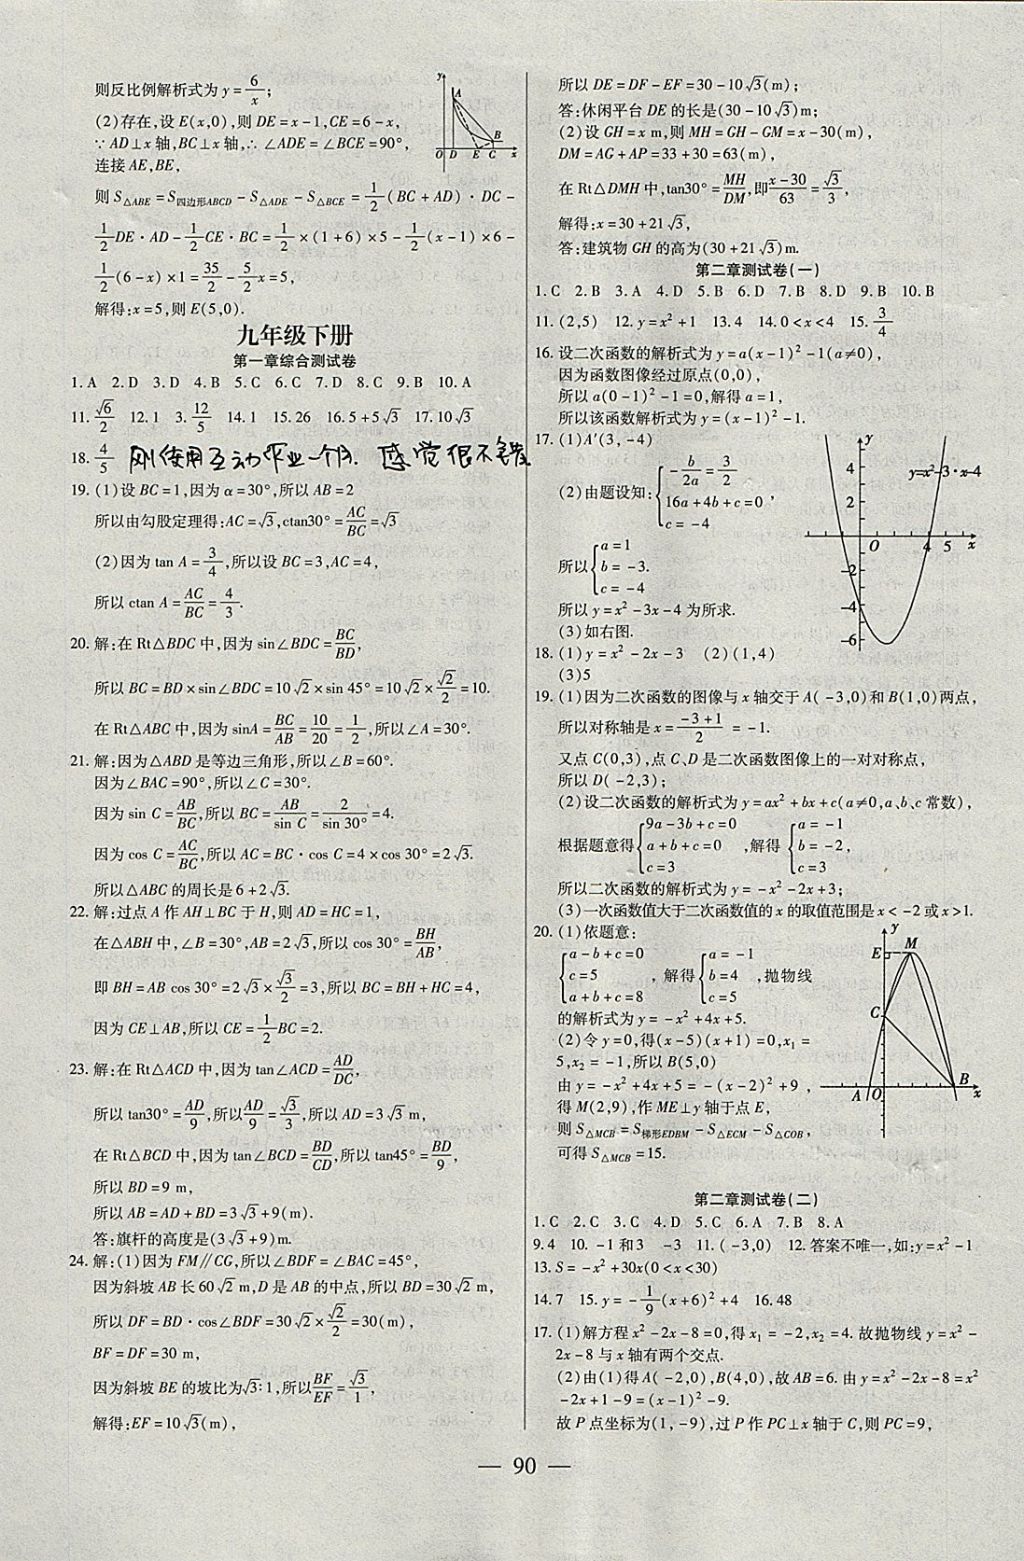 则反比例解析式为 y=6/x;
(2)存在,设 E(x,0),则 DE=x-1,CE=6-x,
∵AD⊥x 轴,BC⊥x 轴,∴∠ADE=∠BCE=90°,
连接 AE,BE,
则 S△ABE=S四边形ABCD-S△ADE-S△BCE=1/2(BC+AD)·DC-
1/2DE·AD-1/2CE·BC=1/2×(1+6)×5-1/2(x-1)×6-
1/2(6-x)×1=35/2-5/2x=5,
解得:x=5,则 E(5,0).
y
A
B
O D E C x
九年级下册
第一章综合测试卷
1.A 2.D 3.D 4.B 5.C 6.C 7.D 8.C 9.B 10.A
11.√6/2 12.1 3.12/5 14.1 15.26 16.5+5√3 17.10√3
18.4/5 刚使用互动作业一个月.感觉很不错
19.(1)设 BC=1,因为 α=30°,所以 AB=2
所以由勾股定理得:AC=√3,ctan30°=AC/BC=√3
(2)因为 tan A=3/4,所以设 BC=3,AC=4,
所以 ctan A=AC/BC=4/3.
20.解:在 Rt△BDC 中,因为 sin∠BDC=BC/BD,
所以 BC=BD×sin∠BDC=10√2×sin 45°=10√2×√2/2=10.
在 Rt△ABC 中,因为 sinA=BC/AB=10/20=1/2,所以∠A=30°.
21.解:因为△ABD 是等边三角形,所以∠B=60°.
因为∠BAC=90°,所以∠C=30°.
因为 sin C=AB/BC,所以 BC=AB/sin C=2/sin 30°=4.
因为 cos C=AC/BC,所以 AC=BC·cos C=4×cos 30°=2√3.
所以△ABC 的周长是 6+2√3.
22.解:过点 A 作 AH⊥BC 于 H,则 AD=HC=1,
在△ABH 中,∠B=30°,AB=2√3,所以 cos 30°=BH/AB,
即 BH=AB cos 30°=2√3×√3/2=3,所以 BC=BH+HC=4,
因为 CE⊥AB,所以 CE=1/2BC=2.
23.解:在 Rt△ACD 中,因为 tan∠ACD=AD/DC,
所以 tan30°=AD/9,所以AD/9=√3/3,所以 AD=3√3 m,
在 Rt△BCD 中,因为 tan∠BCD=BD/CD,所以 tan45°=BD/9,
所以 BD=9 m,
所以 AB=AD+BD=3√3+9(m).
答:旗杆的高度是(3√3+9)m.
24.解:(1)因为 FM∥CG,所以∠BDF=∠BAC=45°,
因为斜坡 AB 长 60√2 m,D 是 AB 的中点,所以 BD=30√2 m,
所以 DF=BD·cos∠BDF=30√2×√2/2=30(m),
BF=DF=30 m,
因为斜坡 BE 的坡比为√3∶1,所以BF/EF=√3/1,
解得:EF=10√3(m),
所以 DE=DF-EF=30-10√3(m);
答:休闲平台 DE 的长是(30-10√3)m;
(2)设 GH=x m,则 MH=GH-GM=x-30(m),
DM=AG+AP=33+30=63(m),
在 Rt△DMH 中,tan30°=MH/DM,即x-30/63=√3/3,
解得:x=30+21√3,
答:建筑物 GH 的高为(30+21√3)m.
第二章测试卷(一)
1.C 2.B 3.A 4.D 5.B 6.D 7.B 8.D 9.B 10.B
11.(2,5) 12.y=x²+1 13.4 14.0<x<4 15.3/4
16.设二次函数的解析式为 y=a(x-1)²-1(a≠0),
因为函数图像经过原点(0,0),
所以 a(0-1)²-1=0,解得 a=1,
所以该函数解析式为 y=(x-1)²-1.
17.(1)A′(3,-4)
(2)由题设知:{-b/2a=3/2
16a+4b+c=0,
c=-4
所以{a=1
b=-3.
c=-4
所以 y=x²-3x-4 为所求.
(3)如右图.
y
4
2
y=x²-3·x-4
O 4 5 x
-2
-4
-6
18.(1)y=x²-2x-3 (2)(1,4)
(3)5
19.(1)因为二次函数的图像与 x 轴交于 A(-3,0)和 B(1,0)两点,
所以对称轴是 x=-3+1/2=-1.
又点 C(0,3),点 C、D 是二次函数图像上的一对对称点,
所以 D(-2,3);
(2)设二次函数的解析式为 y=ax²+bx+c(a≠0,a、b、c 常数),
根据题意得{9a-3b+c=0
a+b+c=0
c=3
,解得{a=-1
b=-2,
c=3
所以二次函数的解析式为 y=-x²-2x+3;
(3)一次函数值大于二次函数值的 x 的取值范围是 x<-2 或 x>1.
20.(1)依题意:
{a-b+c=0
c=5
a+b+c=8
,解得{a=-1
b=4
c=5
,抛物线
的解析式为 y=-x²+4x+5.
(2)令 y=0,得(x-5)(x+1)=0,x₁=
5,x₂=-1,所以 B(5,0)
由 y=-x²+4x+5=-(x-2)²+9,
得 M(2,9),作 ME⊥y 轴于点 E,
则 S△MCB=S梯形EDBM-S△ECM-S△COB,
可得 S△MCB=15.
y
E M
C
A O B x
第二章测试卷(二)
1.C 2.C 3.C 4.D 5.C 6.A 7.B 8.A
9.4 10.-1 和 3 -3 11.(-3,0) 12.答案不唯一,如:y=x²-1
13.S=-x²+30x(0<x<30)
14.7 15.y=-1/9(x+6)²+4 16.48
17.(1)解方程 x²-2x-8=0,得 x₁=-2,x₂=4.故抛物线 y=x²-
2x-8 与 x 轴有两个交点.
(2)由(1)得 A(-2,0),B(4,0),故 AB=6.由 y=x²-2x-8=x²
-2x+1-9=(x-1)²-9.
故 P 点坐标为(1,-9),过 P 作 PC⊥x 轴于 C,则 PC=9,
— 90 —